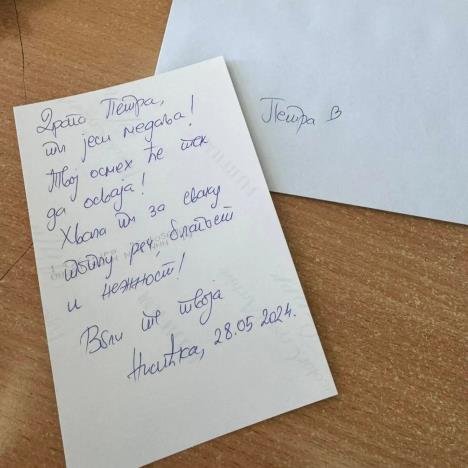 Драга Петра,
ти јеси медаља!
Твој осмех ће тек
да осваја!
Хвала ти за сваку
топлу реч, благост
и нежност!
Воли те твоја
28.05.2024.
Петра В